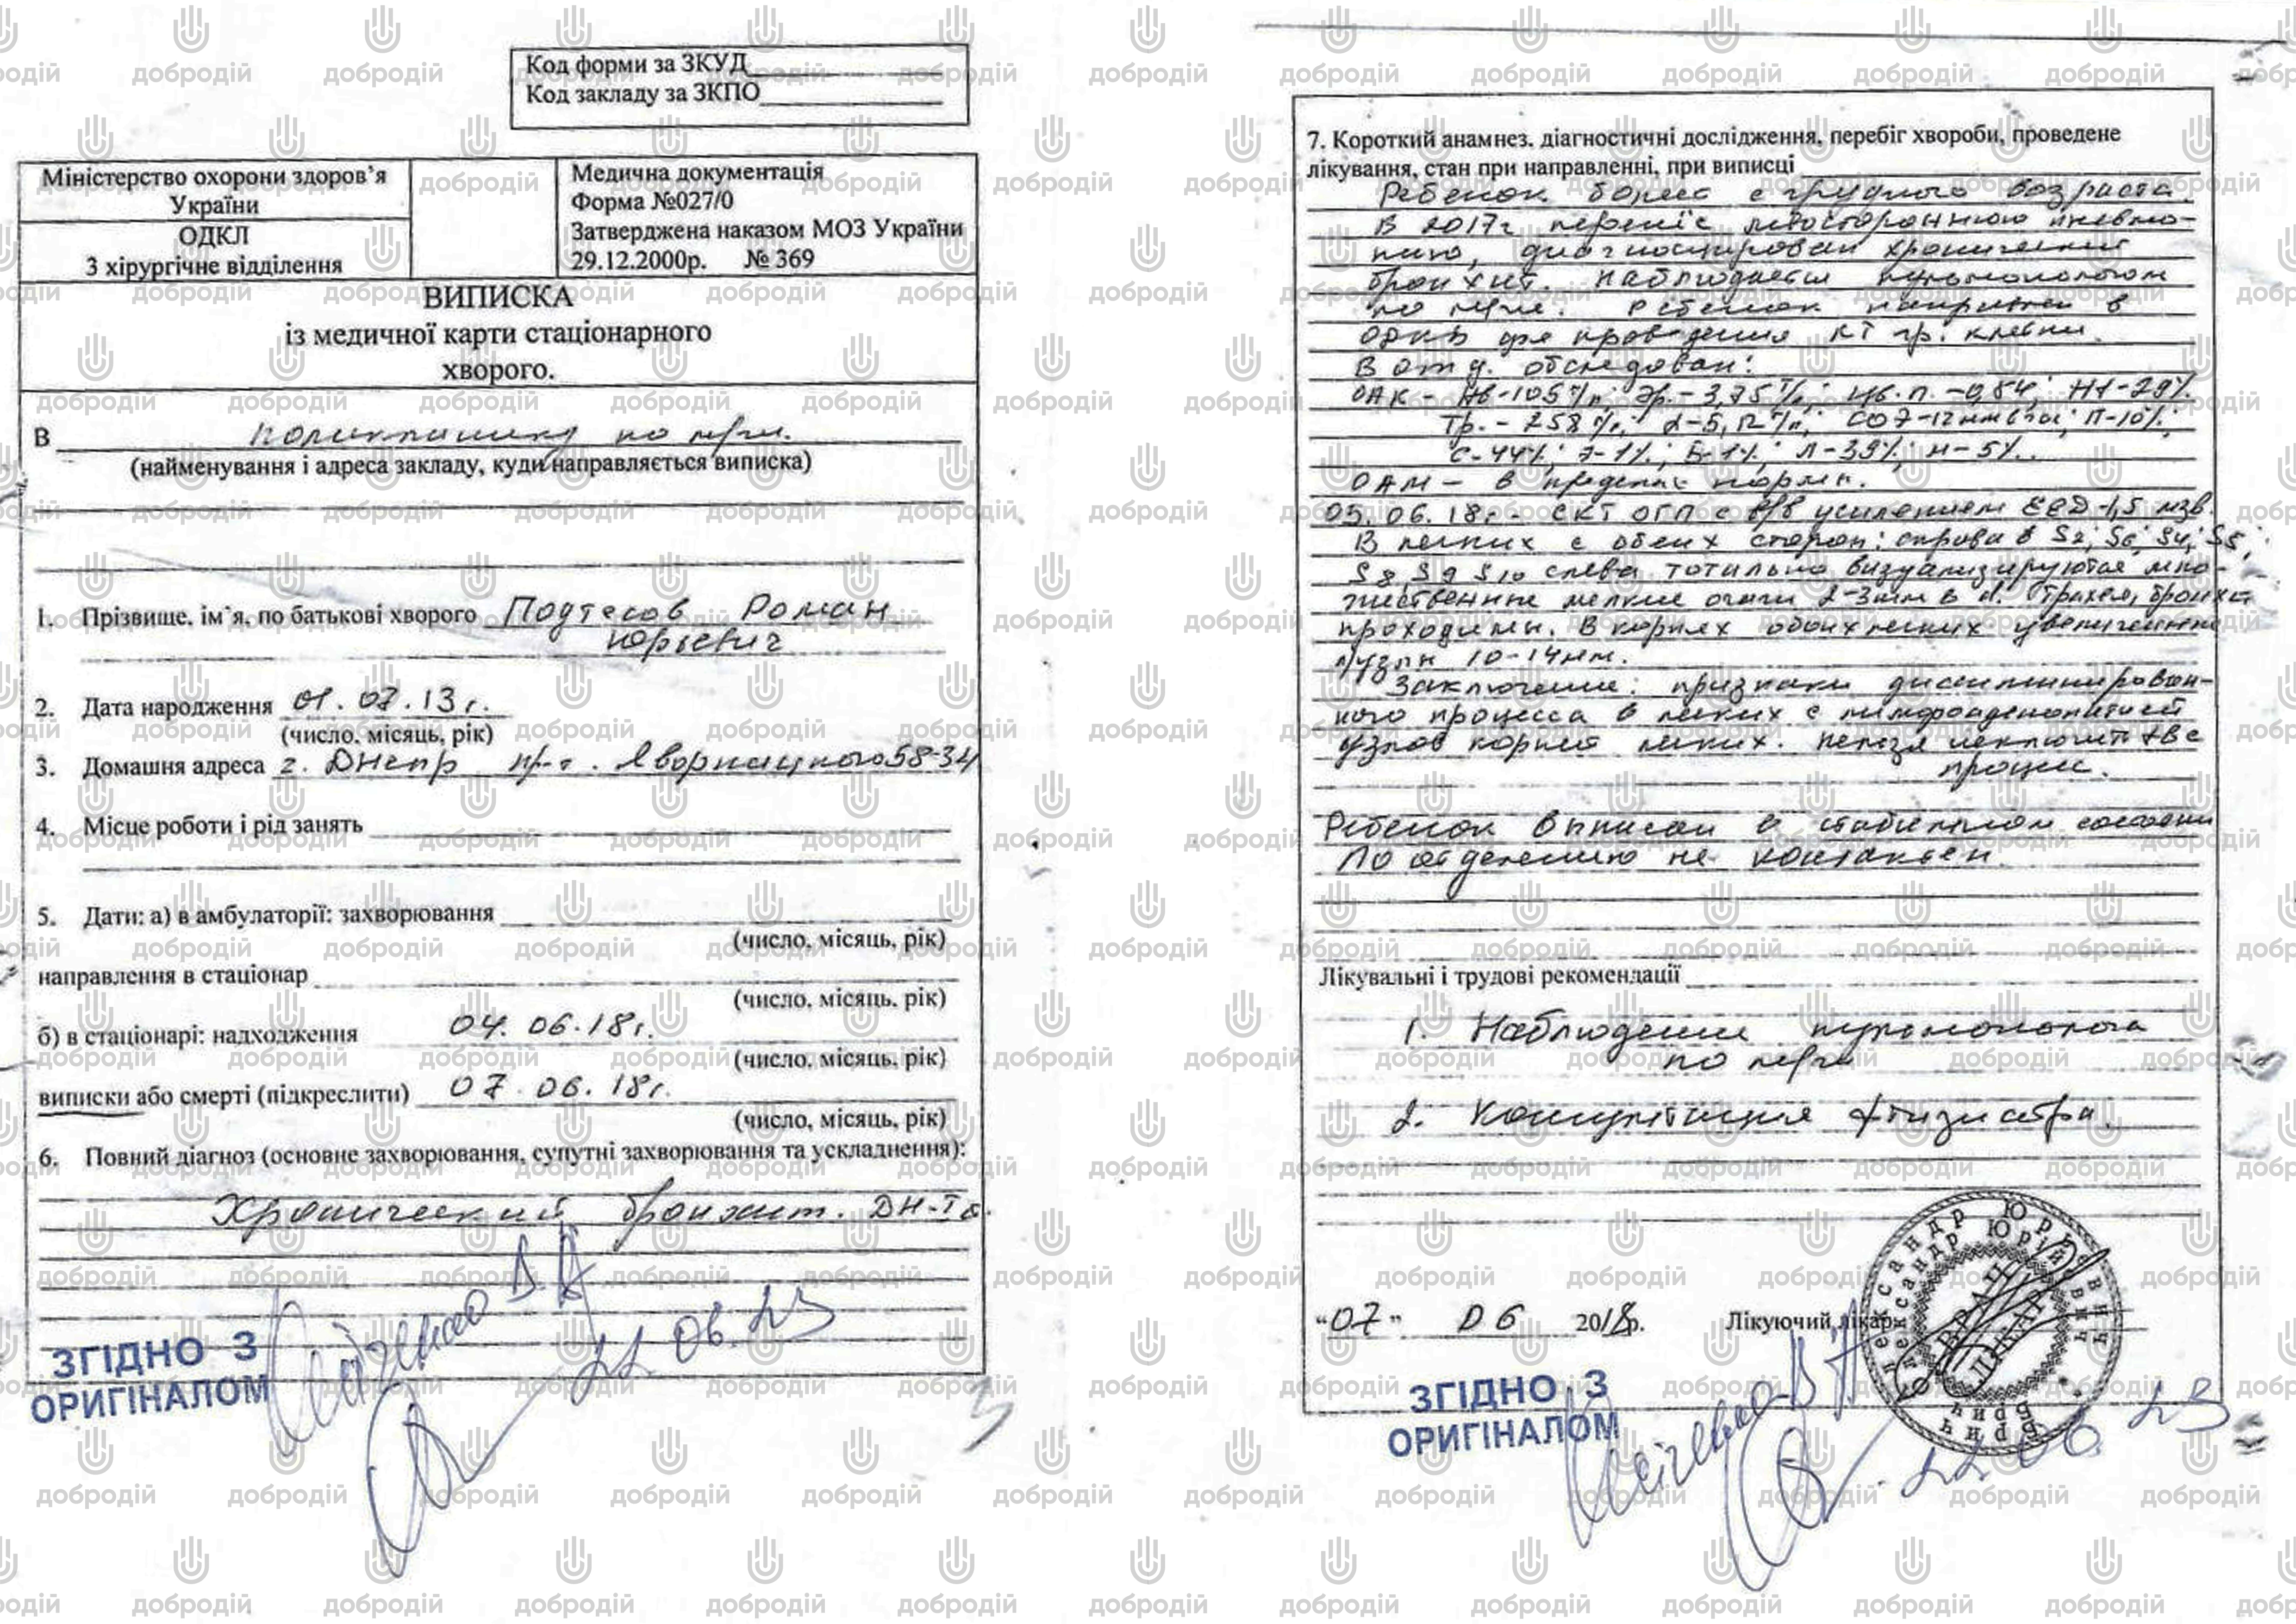 Код форми за ЗКУД
Код закладу за ЗКПО
Міністерство охорони здоров’я
України
ОДКЛ
3 хірургічне відділення
Медична документація
Форма №027/0
Затверджена наказом МОЗ України
29.12.2000р. № 369
ВИПИСКА
із медичної карти стаціонарного
хворого.
В поликлинику по м/ж.
(найменування і адреса закладу, куди направляється виписка)
1. Прізвище, ім`я, по батькові хворого Подтесов Роман
Юрьевич
2. Дата народження 01.07.13г.
(число, місяць, рік)
3. Домашня адреса г. Днепр пр-т. Яворницкого 58-34
4. Місце роботи і рід занять
5. Дати: а) в амбулаторії: захворювання
(число, місяць, рік)
направлення в стаціонар
(число, місяць, рік)
б) в стаціонарі: надходження 04.06.18г.
(число, місяць, рік)
виписки або смерті (підкреслити) 07.06.18г.
(число, місяць, рік)
6. Повний діагноз (основне захворювання, супутні захворювання та ускладнення):
Хронический бронхит. ДН-I
ЗГІДНО З
ОРИГІНАЛОМ
22.06.23
7. Короткий анамнез, діагностичні дослідження, перебіг хвороби, проведене
лікування, стан при направленні, при виписці
Ребенок болеет с грудного возраста.
В 2017г перенес левостороннюю пневмо-
нию, диагносцирован хронический
бронхит. Наблюдается пульмонологом
по м/ж. Ребенок направлен в
для проведения КТ гр. клетки.
В отд. обследован:
ОАК - Нв-105 г/л; Эр.- 3,75 Т/л; Цв.п. -0,84; Ht-29%
Тр. - 258 г/л; СОЭ-12мм/час; П-10%;
С-44%; Э-1%; Б-1%; Л-39%; М-5%.
ОАМ - в пределах нормы.
05.06.18г.- СКТ ОГП с в/в усилением EED-1,5 мзв.
В легких с обеих сторон: справа в S2, S6, S4, S5,
S8, S9 S10 слева тотально визуализируются мно-
жественные мелкие очаги 2-3мм в d. Трахея, бронхи
проходимы. В корнях обоих легких увеличенные
л/узлы 10-14мм.
Заключение: признаки диссеминирован-
ного процесса в легких с лимфоаденопатией
узлов корней легких. Нельзя исключить твс
процесс.
Ребенок выписан в стабильном состоянии
По отделению не контактен.
Лікувальні і трудові рекомендації
1. Наблюдение пульмонолога
по м/ж
2. Консультация фтизиатра.
“07” 06 2018р. Лікуючий лікар
ЗГІДНО З
ОРИГІНАЛОМ
22.06.23
добродій